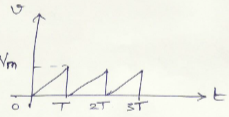 v
Vm
0 T 2T 3T t